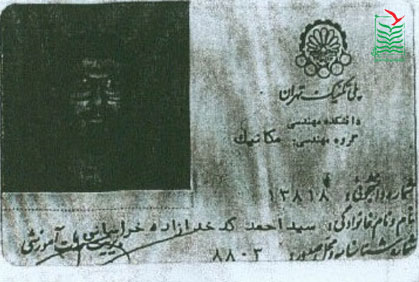 پلی تکنیک تهران
دانشکده مهندسی
گروه مهندسی: مکانیک
شماره دانشجوئی: ۱۳۸۱۸
نام و نام خانوادگی: سید احمد کدخدازاده خراسانی
شماره شناسنامه و محل صدور: ۸۸۰۳
آموزشی